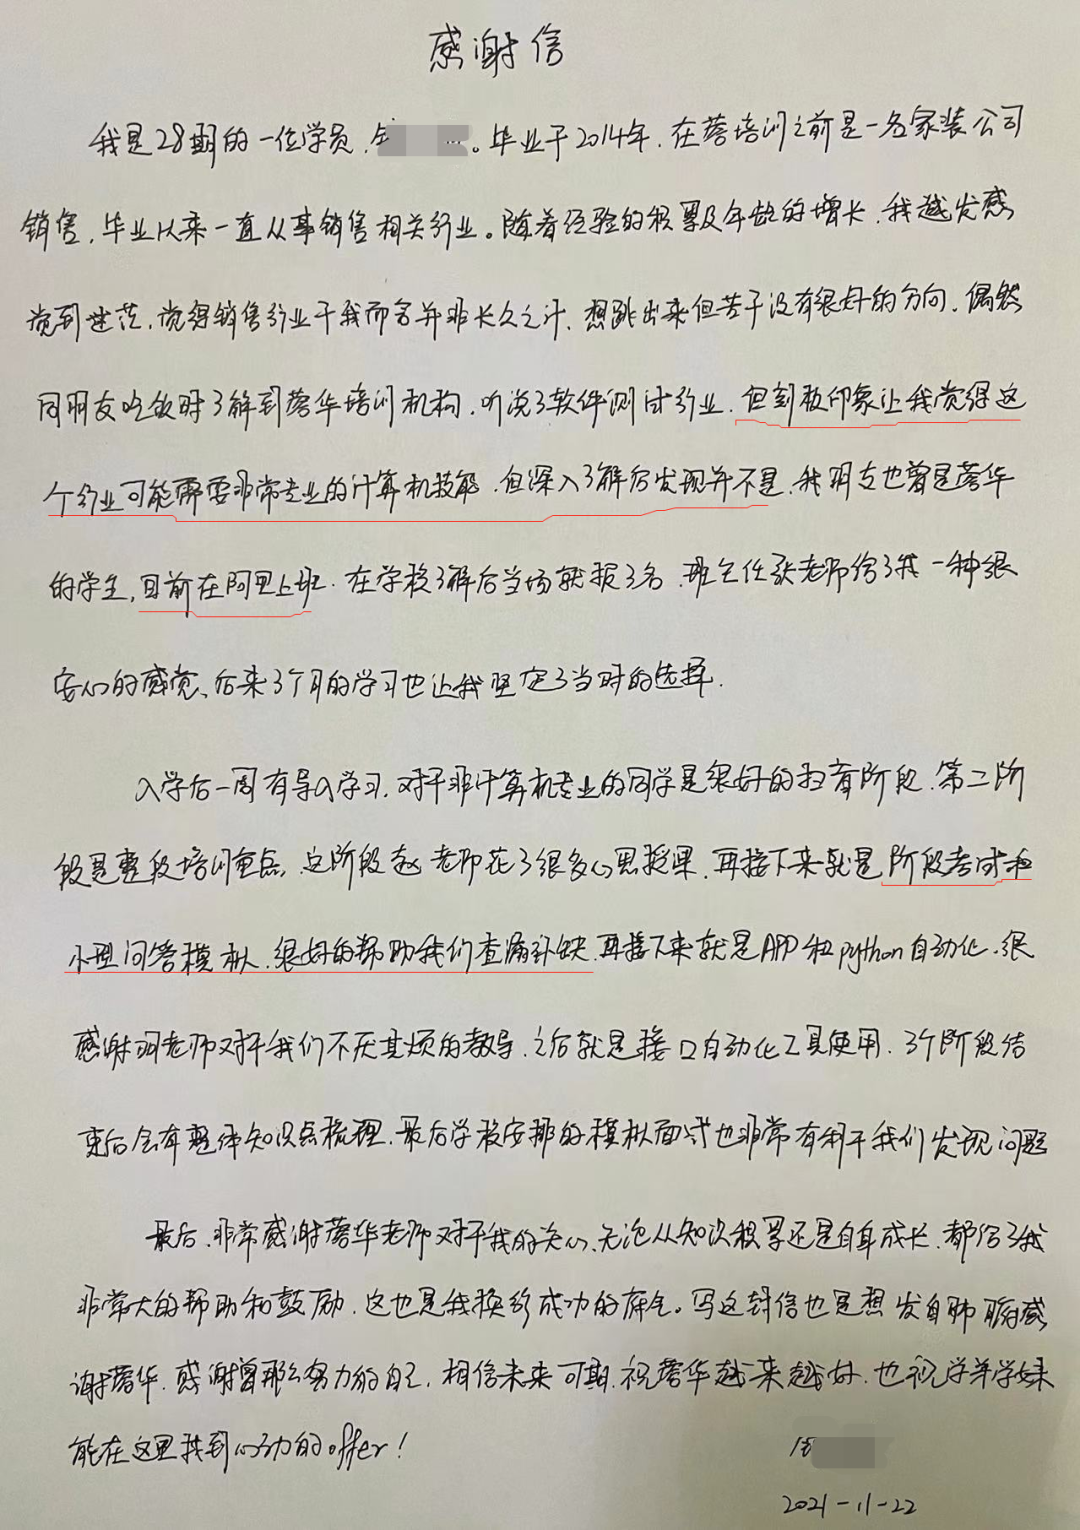 感谢信
我是28期的一位学员,。毕业于2014年,在蓉培训之前是一名家装公司
销售,毕业以来一直从事销售相关行业。随着经验的积累及年龄的增长,我越发感
觉到迷茫,觉得销售行业于我而言并非长久之计,想跳出来但苦于没有很好的方向,偶然
同朋友吃饭时了解到蓉华培训机构,听说了软件测试行业,但刻板印象让我觉得这
个行业可能需要非常专业的计算机技能,但深入了解后发现并不是,我朋友也曾是蓉华
的学生,目前在阿里上班.在学校了解后当场就报了名,班主任张老师给了我一种很
安心的感觉、后来3个月的学习也让我坚定了当时的选择.
入学后一周有导入学习,对于非计算机专业的同学是很好的扫盲阶段.第二阶
段是整段培训重点,这阶段赵老师花了很多心思授课,再接下来就是阶段考试和
小型问答模拟,很好的帮助我们查漏补缺,再接下来就是APP和python自动化.很
感谢胡老师对于我们不厌其烦的教导,之后就是接口自动化工具使用,3个阶段结
束后会有整体知识点梳理,最后学校安排的模拟面试也非常有利于我们发现问题
最后,非常感谢蓉华老师对于我的关心、无论从知识积累还是自身成长,都给了我
非常大的帮助和鼓励,这也是我换行成功的底气。写这封信也是想发自肺腑感
谢蓉华,感谢曾那么努力的自己,相信未来可期,祝蓉华越来越好,也祝学弟学妹
能在这里找到心动的offer!
2021-11-22